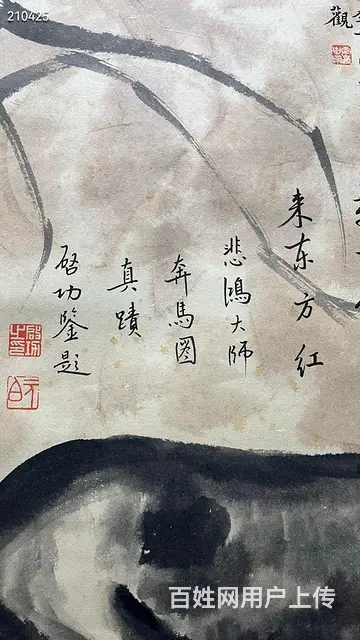 210425
觀
来东方红
悲鴻大师
奔馬圖
真蹟
启功鑒题
百姓网用户上传